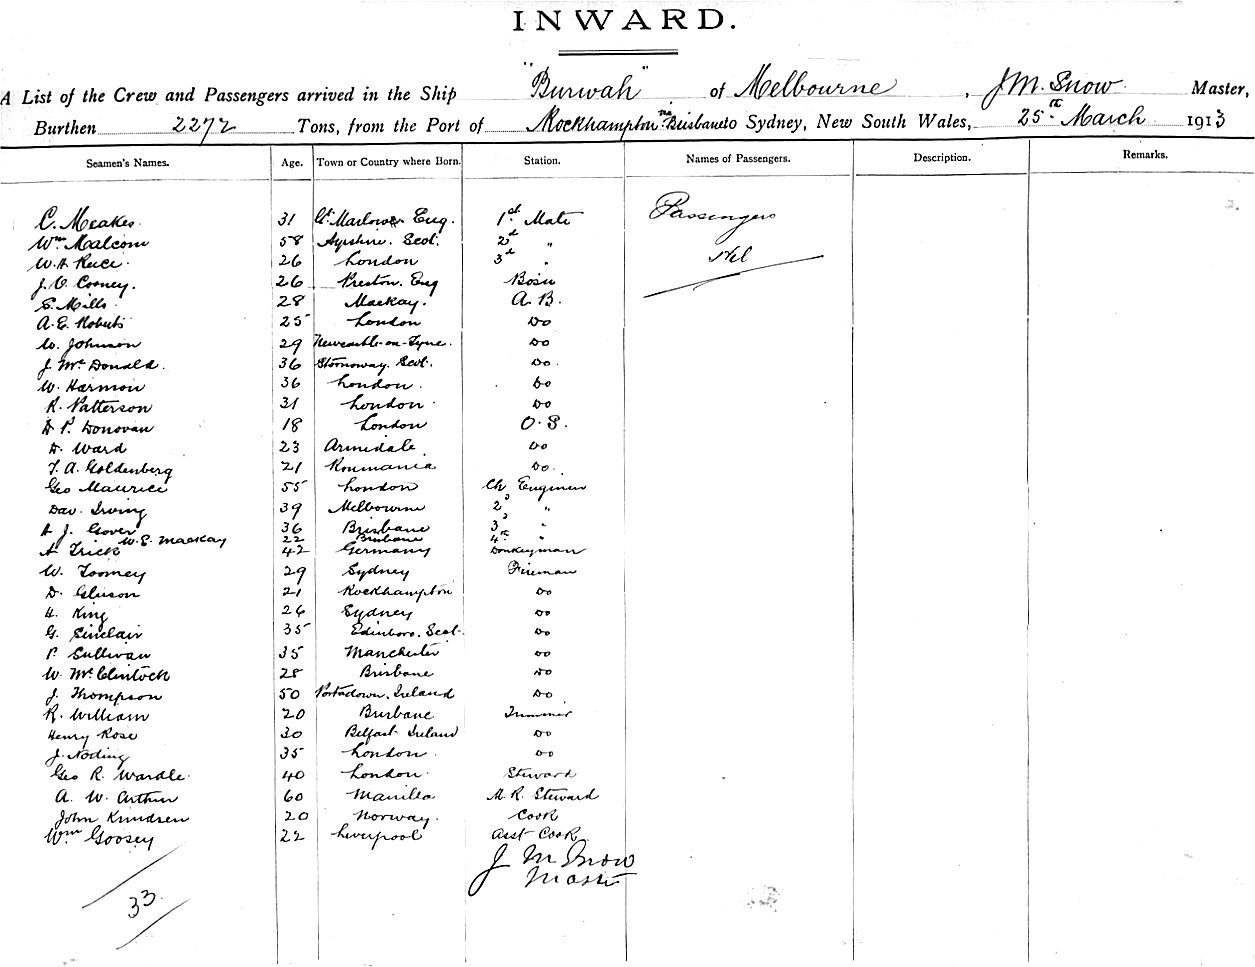 INWARD.
A List of the Crew and Passengers arrived in the Ship "Burwah" of Melbourne, J M. Snow Master,
Burthen 2272 Tons, from the Port of Rockhampton via Brisbane to Sydney, New South Wales, 25th March 1913
Seamen's Names. Age. Town or Country where Born. Station. Names of Passengers. Description. Remarks.
C. Meakes. 31 Gt. Marlow Eng. 1st Mate Passengers
Wm. Malcom 58 Ayrshire. Scot. 2d "
W. H. Reice. 26 London 3d " Nil
J. O. Cooney. 26 Preston. Eng Bosn
S. Mills. 28 Mackay. A. B.
A. E. Roberts 25 London Do
W. Johnson 29 Newcastle-on-Tyne. Do
J. McDonald. 36 Stornoway. Scot. Do.
W. Harmon 36 London. Do
R. Patterson 31 London. Do
D P. Donovan 18 London O. S.
D. Ward 23 Armidale Do
T. A. Goldenberg 21 Roumania Do.
Geo Maurice 55 London Ch. Engineer
Dav. Irving 39 Melbourne 2 "
A J. Glover 36 Brisbane 3 "
W. E. Mackay 22 Brisbane 4th "
A Frick 42 Germany Donkeyman
W. Toomey 29 Sydney Fireman
D. Gleeson 21 Rockhampton Do
H. King 26 Sydney Do
G. Sinclair 35 Edinboro. Scot. Do
P. Sullivan 35 Manchester Do
W. McClintock 28 Brisbane Do
J. Thompson 50 Portadown. Ireland Do
R. William 20 Brisbane Trimmer
Henry Rose 30 Belfast Ireland Do
J. Noding 35 London. Do
Geo R. Wardle. 40 London. Steward
A. W. Arthur 60 Manilla M. R. Steward
John Knudsen 20 Norway. Cook
Wm Goosey 22 Liverpool Asst Cook
J M Snow
Master
33